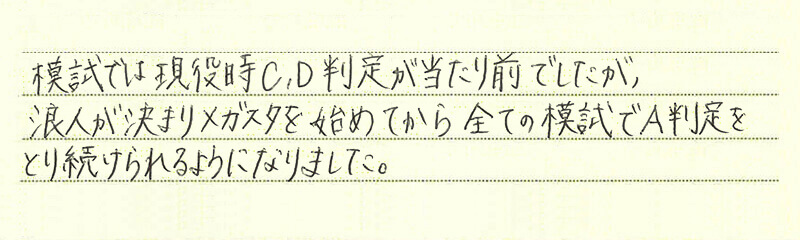 模試では現役時C,D判定が当たり前でしたが,
浪人が決まりメガスタを始めてから全ての模試でA判定を
とり続けられるようになりました。